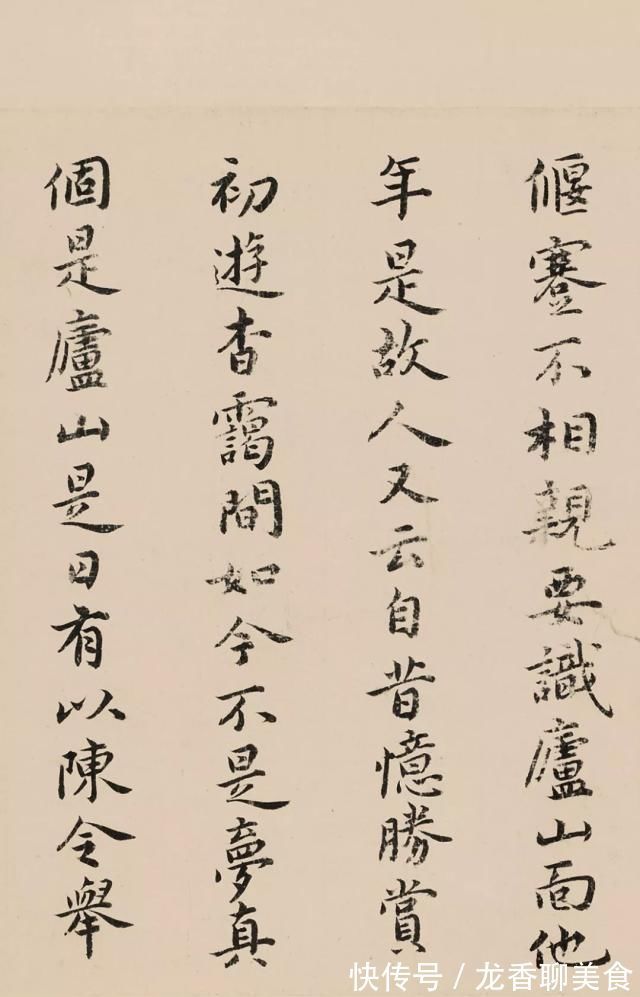 偃蹇不相親要識廬山面他
年是故人又云自昔憶勝賞
初遊杳靄間如今不是夢真
個是廬山是日有以陳令舉
快传号 / 龙香聊美食